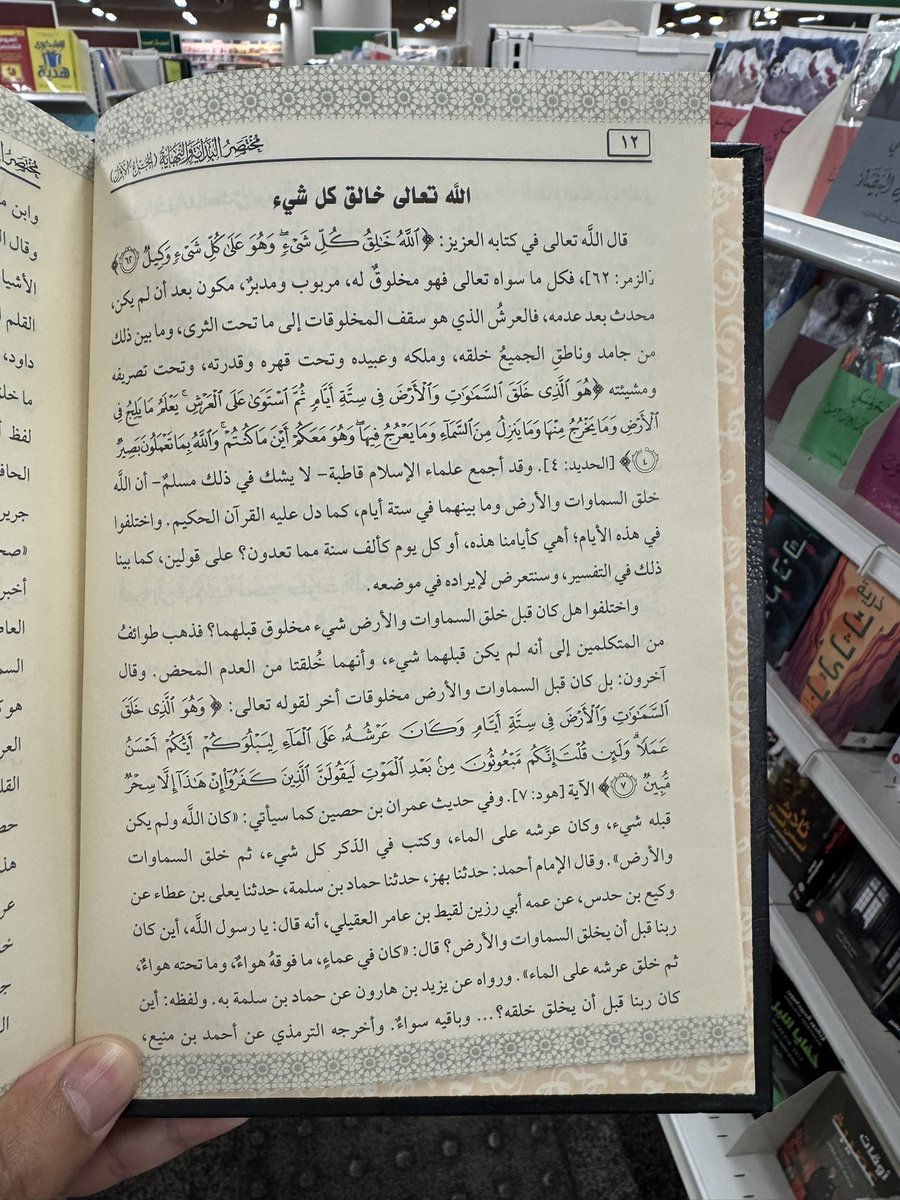 ١٢
مختصر البداية والنهاية
الله تعالى خالق كل شيء
قال اللَّه تعالى في كتابه العزيز: ﴿ٱللَّهُ خَٰلِقُ كُلِّ شَىْءٍ ۖ وَهُوَ عَلَىٰ كُلِّ شَىْءٍ وَكِيلٌ ۝٦٢﴾
[الزمر: ٦٢]، فكل ما سواه تعالى فهو مخلوقٌ له، مربوب ومدبرٌ، مكون بعد أن لم يكن،
محدث بعد عدمه، فالعرشُ الذي هو سقف المخلوقات إلى ما تحت الثرى، وما بين ذلك
من جامد وناطقٍ الجميعُ خلقه، وملكه وعبيده وتحت قهره وقدرته، وتحت تصريفه
ومشيئته ﴿هُوَ ٱلَّذِى خَلَقَ ٱلسَّمَٰوَٰتِ وَٱلْأَرْضَ فِى سِتَّةِ أَيَّامٍ ثُمَّ ٱسْتَوَىٰ عَلَى ٱلْعَرْشِ ۚ يَعْلَمُ مَا يَلِجُ فِى
ٱلْأَرْضِ وَمَا يَخْرُجُ مِنْهَا وَمَا يَنزِلُ مِنَ ٱلسَّمَآءِ وَمَا يَعْرُجُ فِيهَا ۖ وَهُوَ مَعَكُمْ أَيْنَ مَا كُنتُمْ ۚ وَٱللَّهُ بِمَا تَعْمَلُونَ بَصِيرٌ
۝٤﴾ [الحديد: ٤]. وقد أجمع علماء الإسلام قاطبة- لا يشك في ذلك مسلمٌ- أن اللَّه
خلق السماوات والأرض وما بينهما في ستة أيام، كما دل عليه القرآن الحكيم. واختلفوا
في هذه الأيام؛ أهي كأيامنا هذه، أو كل يوم كألف سنة مما تعدون؟ على قولين، كما بينا
ذلك في التفسير، وسنتعرض لإيراده في موضعه.
واختلفوا هل كان قبل خلق السماوات والأرض شيء مخلوق قبلهما؟ فذهب طوائفُ
من المتكلمين إلى أنه لم يكن قبلهما شيء، وأنهما خُلقتا من العدم المحض. وقال
آخرون: بل كان قبل السماوات والأرض مخلوقات أخر لقوله تعالى: ﴿وَهُوَ ٱلَّذِى خَلَقَ
ٱلسَّمَٰوَٰتِ وَٱلْأَرْضَ فِى سِتَّةِ أَيَّامٍ وَكَانَ عَرْشُهُۥ عَلَى ٱلْمَآءِ لِيَبْلُوَكُمْ أَيُّكُمْ أَحْسَنُ
عَمَلًا ۗ وَلَئِن قُلْتَ إِنَّكُم مَّبْعُوثُونَ مِنۢ بَعْدِ ٱلْمَوْتِ لَيَقُولَنَّ ٱلَّذِينَ كَفَرُوٓا۟ إِنْ هَٰذَآ إِلَّا سِحْرٌ
مُّبِينٌ ۝٧﴾ الآية [هود: ٧]. وفي حديث عمران بن حصين كما سيأتي: «كان اللَّه ولم يكن
قبله شيء، وكان عرشه على الماء، وكتب في الذكر كل شيء، ثم خلق السماوات
والأرض». وقال الإمام أحمد: حدثنا بهز، حدثنا حماد بن سلمة، حدثنا يعلى بن عطاء عن
وكيع بن حدس، عن عمه أبي رزين لقيط بن عامر العقيلي، أنه قال: يا رسول اللَّه، أين كان
ربنا قبل أن يخلق السماوات والأرض؟ قال: «كان في عماءٍ، ما فوقهُ هواءٌ، وما تحته هواءٌ،
ثم خلق عرشه على الماء». ورواه عن يزيد بن هارون عن حماد بن سلمة به. ولفظه: أين
كان ربنا قبل أن يخلق خلقه؟... وباقيه سواءٌ. وأخرجه الترمذي عن أحمد بن منيع،